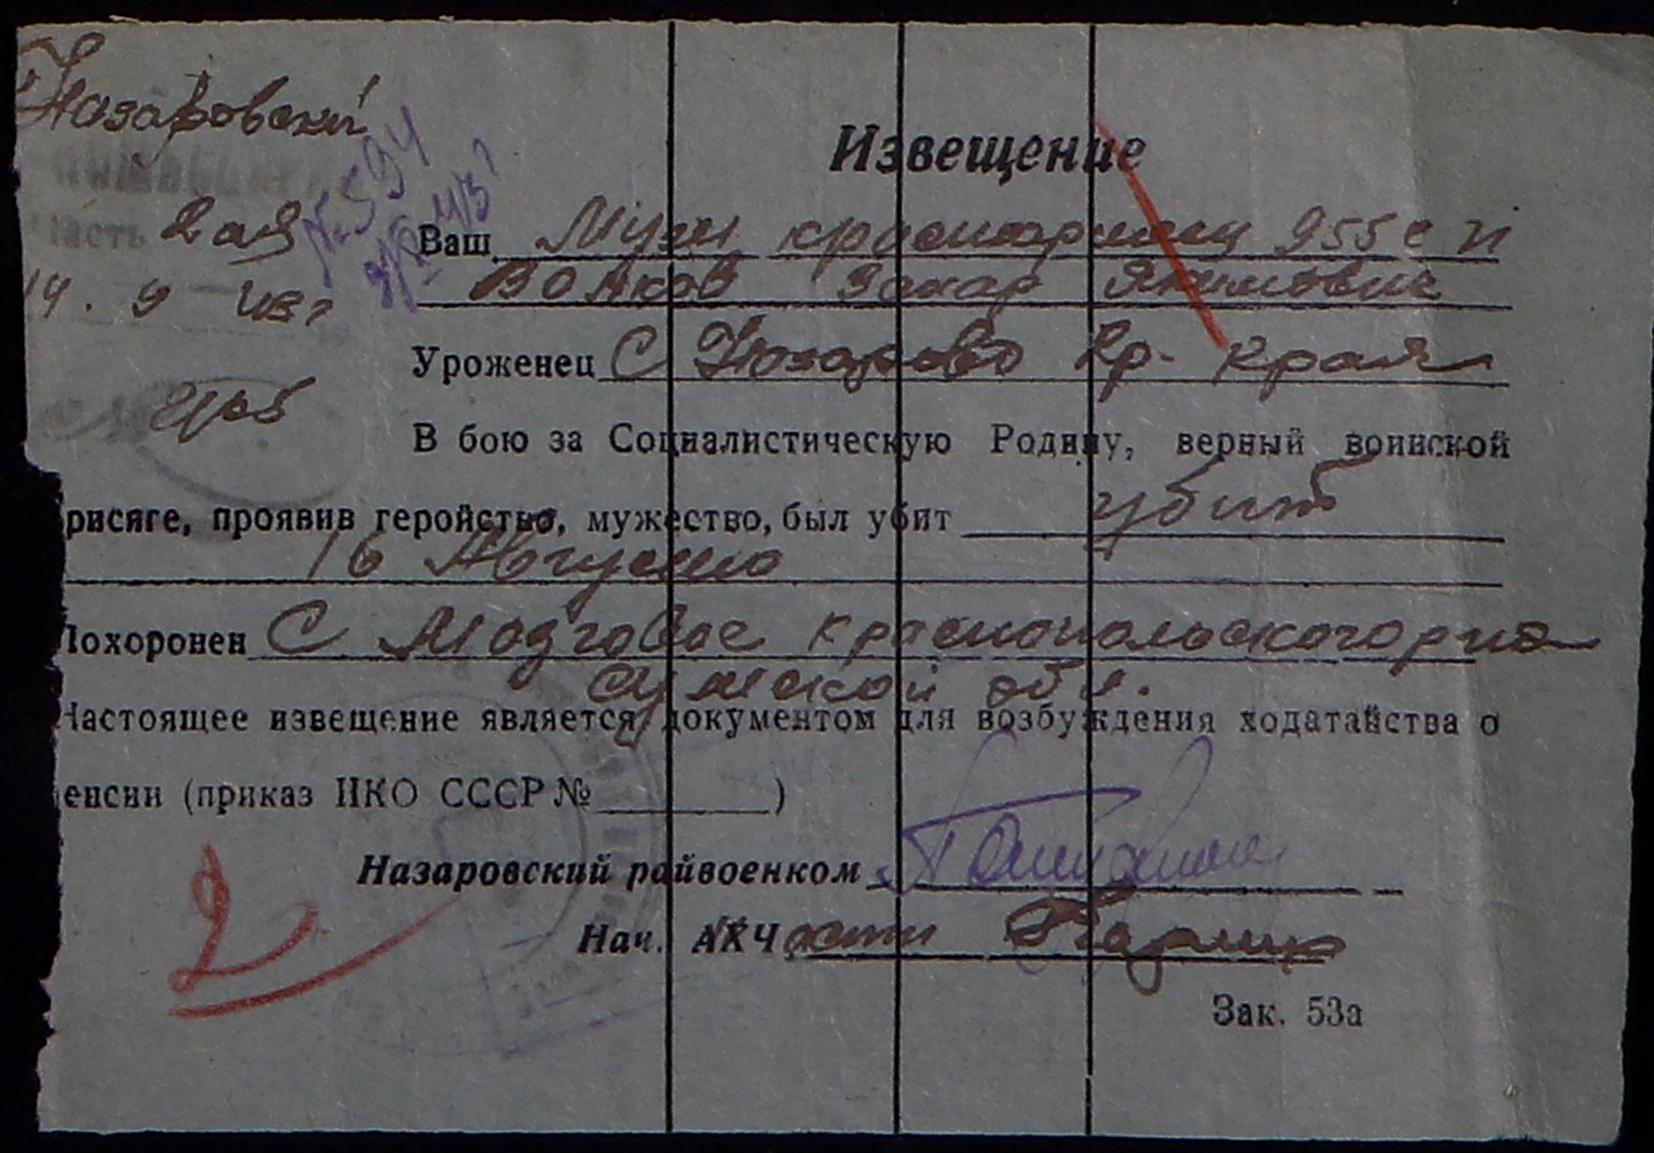 Назаровский
Извещение
часть 2ая
№ 594
Ваш Муж красноармеец 955 с п
14. 9 43г
Волков Захар Якимович
Уроженец С Назарово Кр. края
В бою за Социалистическую Родину, верный воинской
рисяге, проявив геройство, мужество, был убит убит
16 Августа
Похоронен С Мозговое Краснопольского р на
Сумской обл.
Настоящее извещение является документом для возбуждения ходатайства о
енсии (приказ НКО СССР № )
Назаровский райвоенком
Нач. АХЧ
2
Зак. 53а